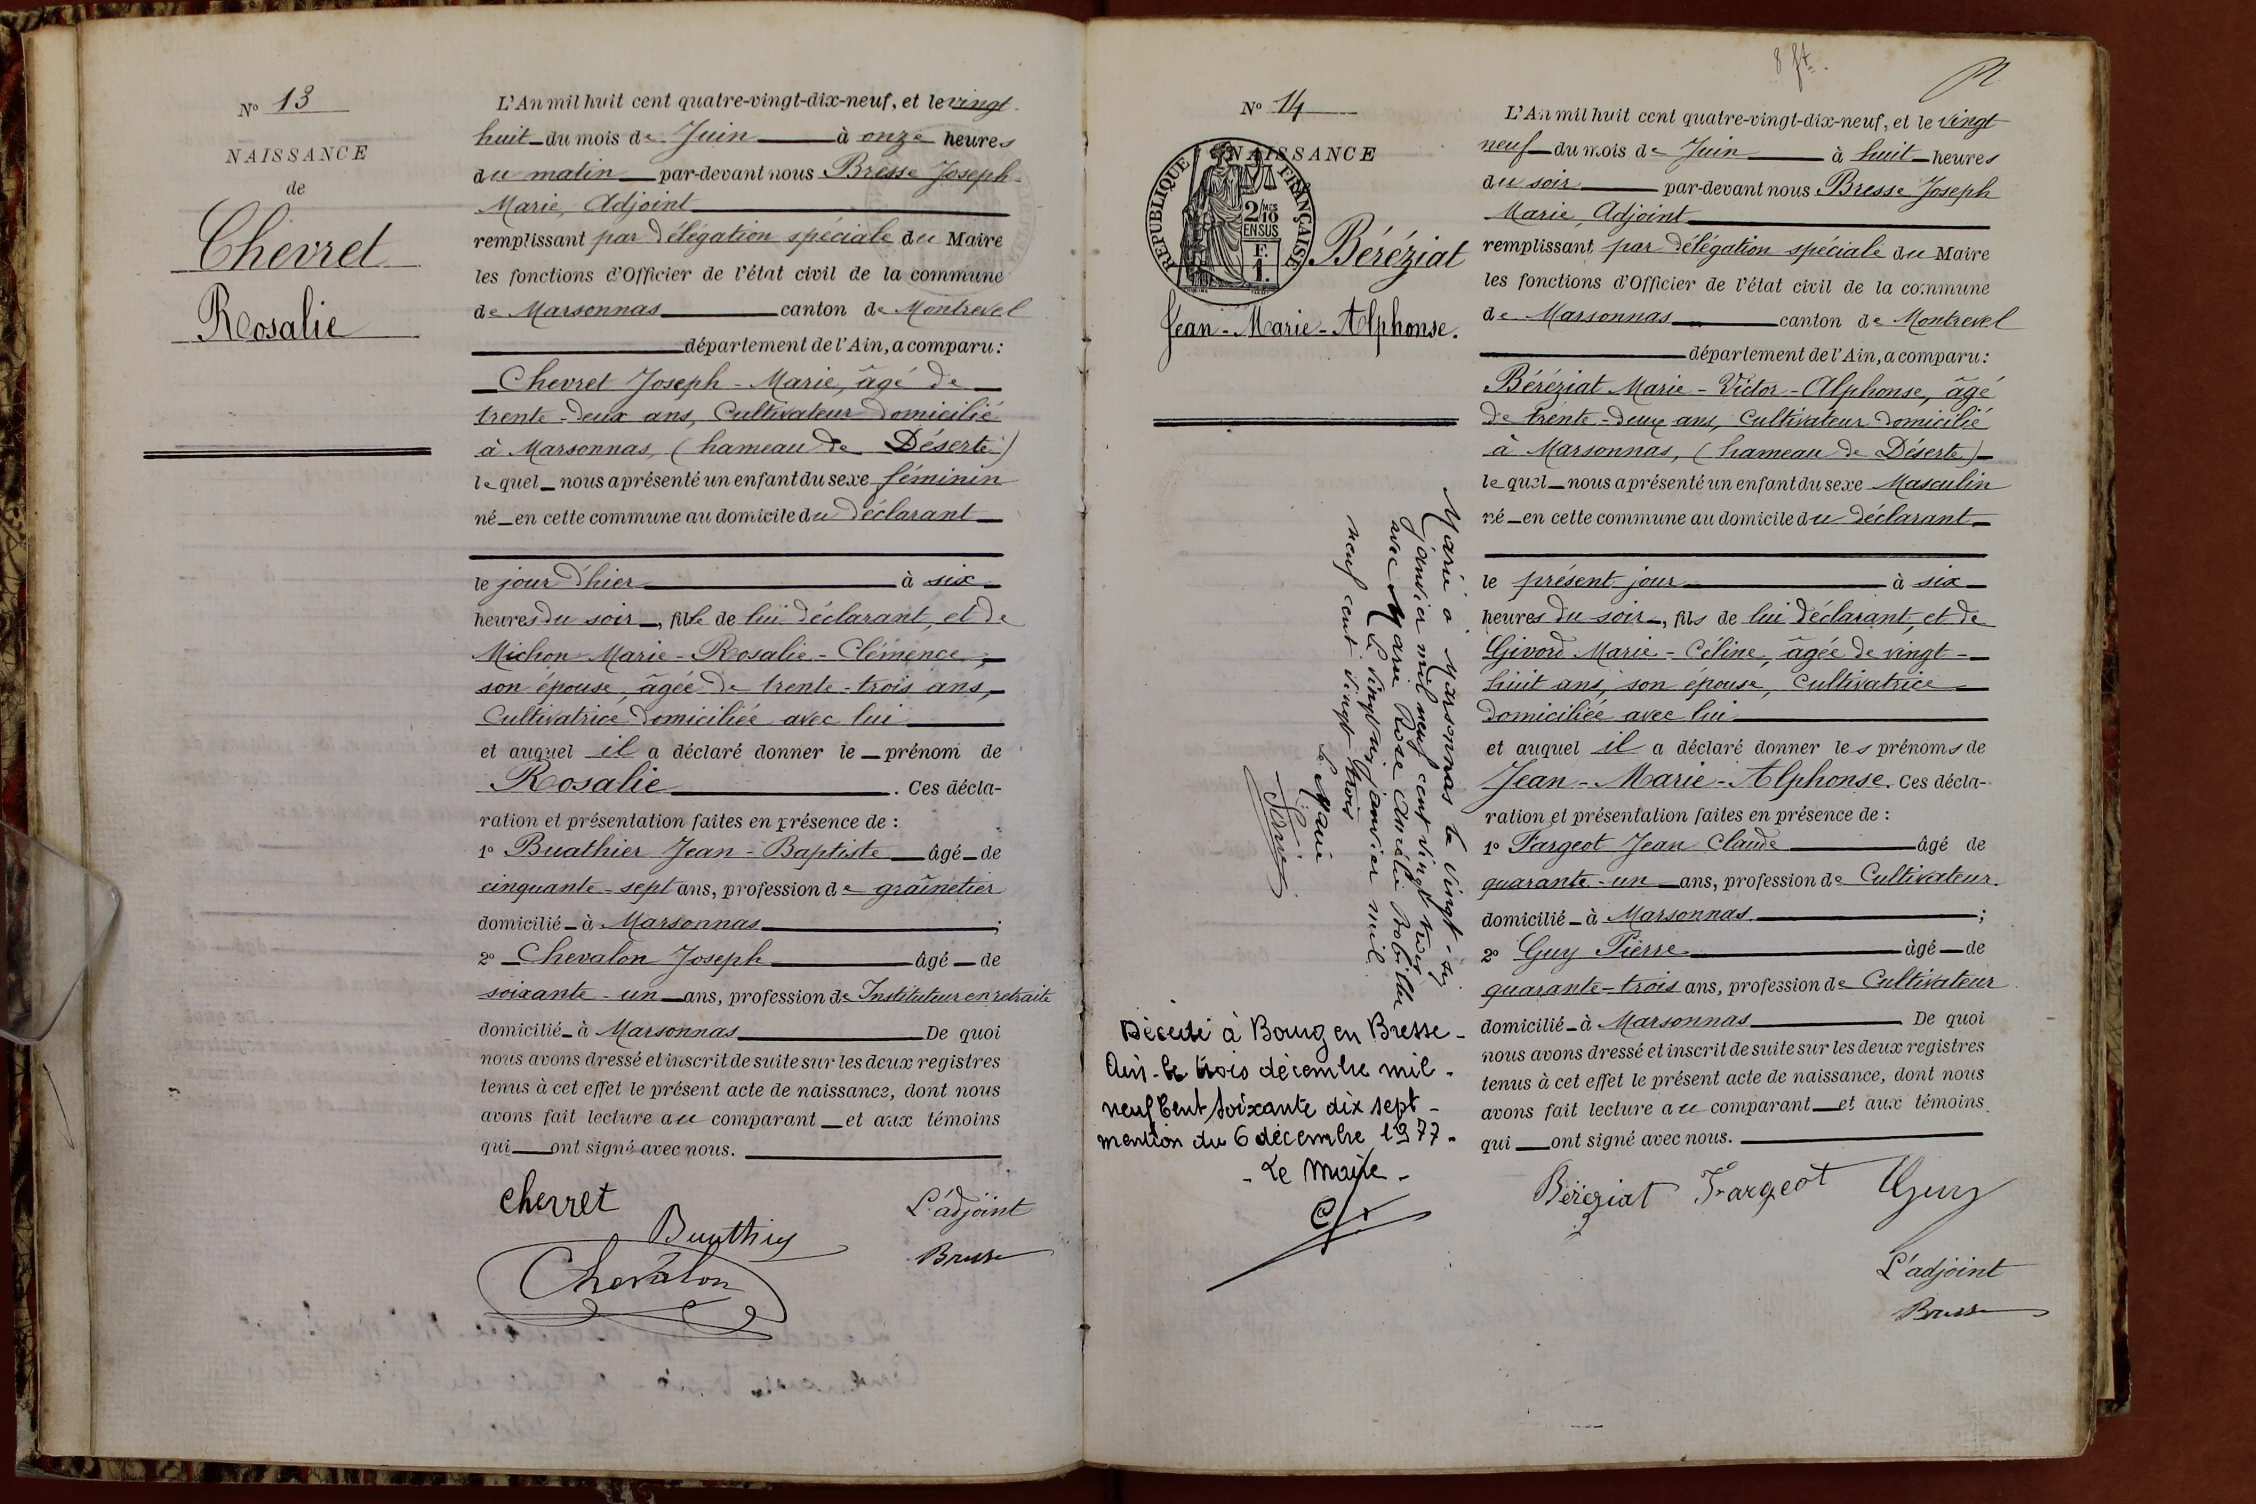 Nº 13
NAISSANCE
de
Chevret
Rosalie
L'An mil huit cent quatre-vingt-dix-neuf, et le vingt
huit du mois de Juin à onze heures
du matin par-devant nous Bresse Joseph
Marie, Adjoint
remplissant par délégation spéciale du Maire
les fonctions d'Officier de l'état civil de la commune
de Marsonnas canton de Montrevel
département de l'Ain, a comparu :
Chevret Joseph - Marie, âgé de
trente-deux ans, Cultivateur domicilié
à Marsonnas, (hameau de Déserte)
lequel nous a présenté un enfant du sexe féminin
né en cette commune au domicile du déclarant
le jour d'hier à six
heures du soir, fille de lui déclarant, et de
Michon Marie - Rosalie - Clémence,
son épouse, âgée de trente-trois ans,
Cultivatrice domiciliée avec lui
et auquel il a déclaré donner le prénom de
Rosalie. Ces décla-
ration et présentation faites en présence de :
1º Buathier Jean - Baptiste âgé de
cinquante-sept ans, profession de graînetier
domicilié à Marsonnas ;
2º Chevalon Joseph âgé de
soixante-un ans, profession de Instituteur en retraite
domicilié à Marsonnas De quoi
nous avons dressé et inscrit de suite sur les deux registres
tenus à cet effet le présent acte de naissance, dont nous
avons fait lecture au comparant et aux témoins
qui ont signé avec nous.
Chevret
Buathier
L'adjoint
Chevalon
Bresse
8 ft.
Nº 14
NAISSANCE
REPUBLIQUE FRANÇAISE
2/10
EN SUS
F.
1.
Béréziat
Jean - Marie - Alphonse.
L'An mil huit cent quatre-vingt-dix-neuf, et le vingt
neuf du mois de Juin à huit heures
du soir par-devant nous Bresse Joseph
Marie, Adjoint
remplissant par délégation spéciale du Maire
les fonctions d'Officier de l'état civil de la commune
de Marsonnas canton de Montrevel
département de l'Ain, a comparu :
Béréziat Marie - Victor - Alphonse, âgé
de trente-deux ans, Cultivateur domicilié
à Marsonnas, (hameau de Déserte)
lequel nous a présenté un enfant du sexe Masculin
né en cette commune au domicile du déclarant
le présent jour à six
heures du soir, fils de lui déclarant, et de
Givord Marie - Céline, âgée de vingt-
huit ans, son épouse, Cultivatrice
domiciliée avec lui
et auquel il a déclaré donner les prénoms de
Jean - Marie - Alphonse. Ces décla-
ration et présentation faites en présence de :
1º Fargeot Jean Claude âgé de
quarante-un ans, profession de Cultivateur.
domicilié à Marsonnas ;
2º Guy Pierre âgé de
quarante-trois ans, profession de Cultivateur
domicilié à Marsonnas De quoi
nous avons dressé et inscrit de suite sur les deux registres
tenus à cet effet le présent acte de naissance, dont nous
avons fait lecture au comparant et aux témoins
qui ont signé avec nous.
Béréziat Fargeot Guy
L'adjoint
Bresse
Marié à Marsonnas le vingt-six
janvier mil neuf cent vingt trois
avec Marie Rose Amélie Robillon
Le vingt six janvier mil
neuf cent vingt trois
Le Maire
Décédé à Bourg en Bresse -
Ain - le trois décembre mil -
neuf Cent soixante dix sept -
mention du 6 décembre 1977 -
- Le Maire -